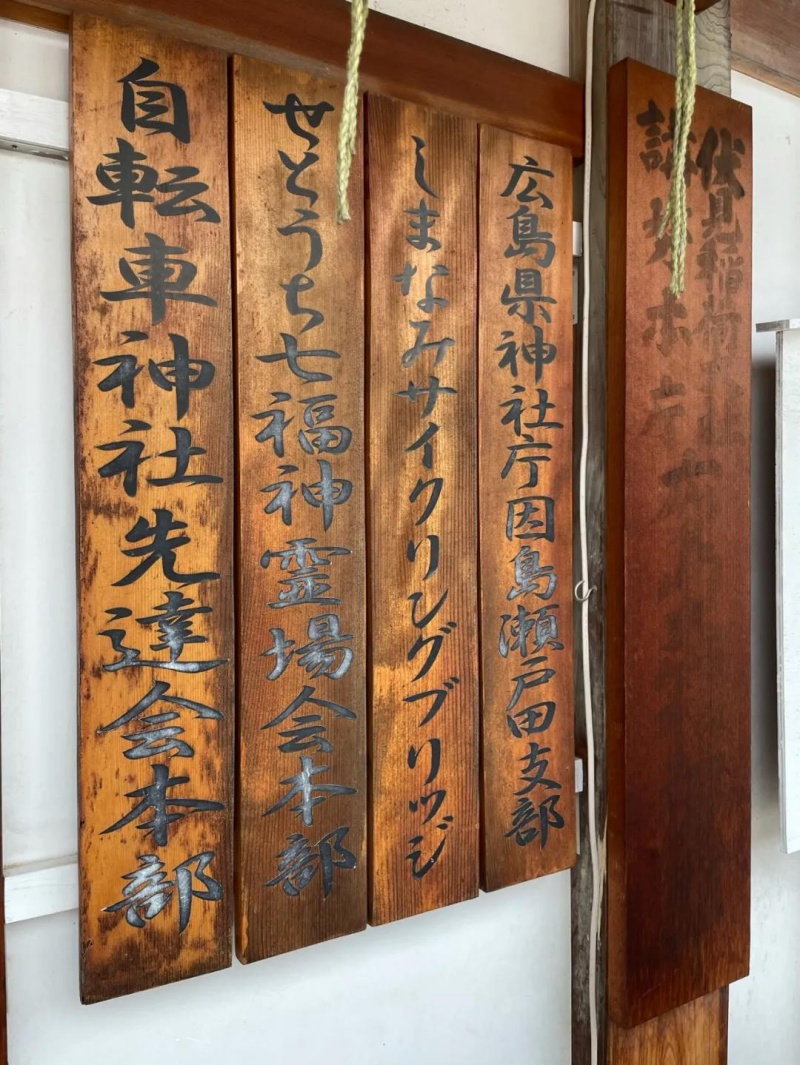 伏見稲荷
講務本庁
広島県神社庁因島瀬戸田支部
しまなみサイクリングブリッジ
せとうち七福神霊場会本部
自転車神社先達会本部